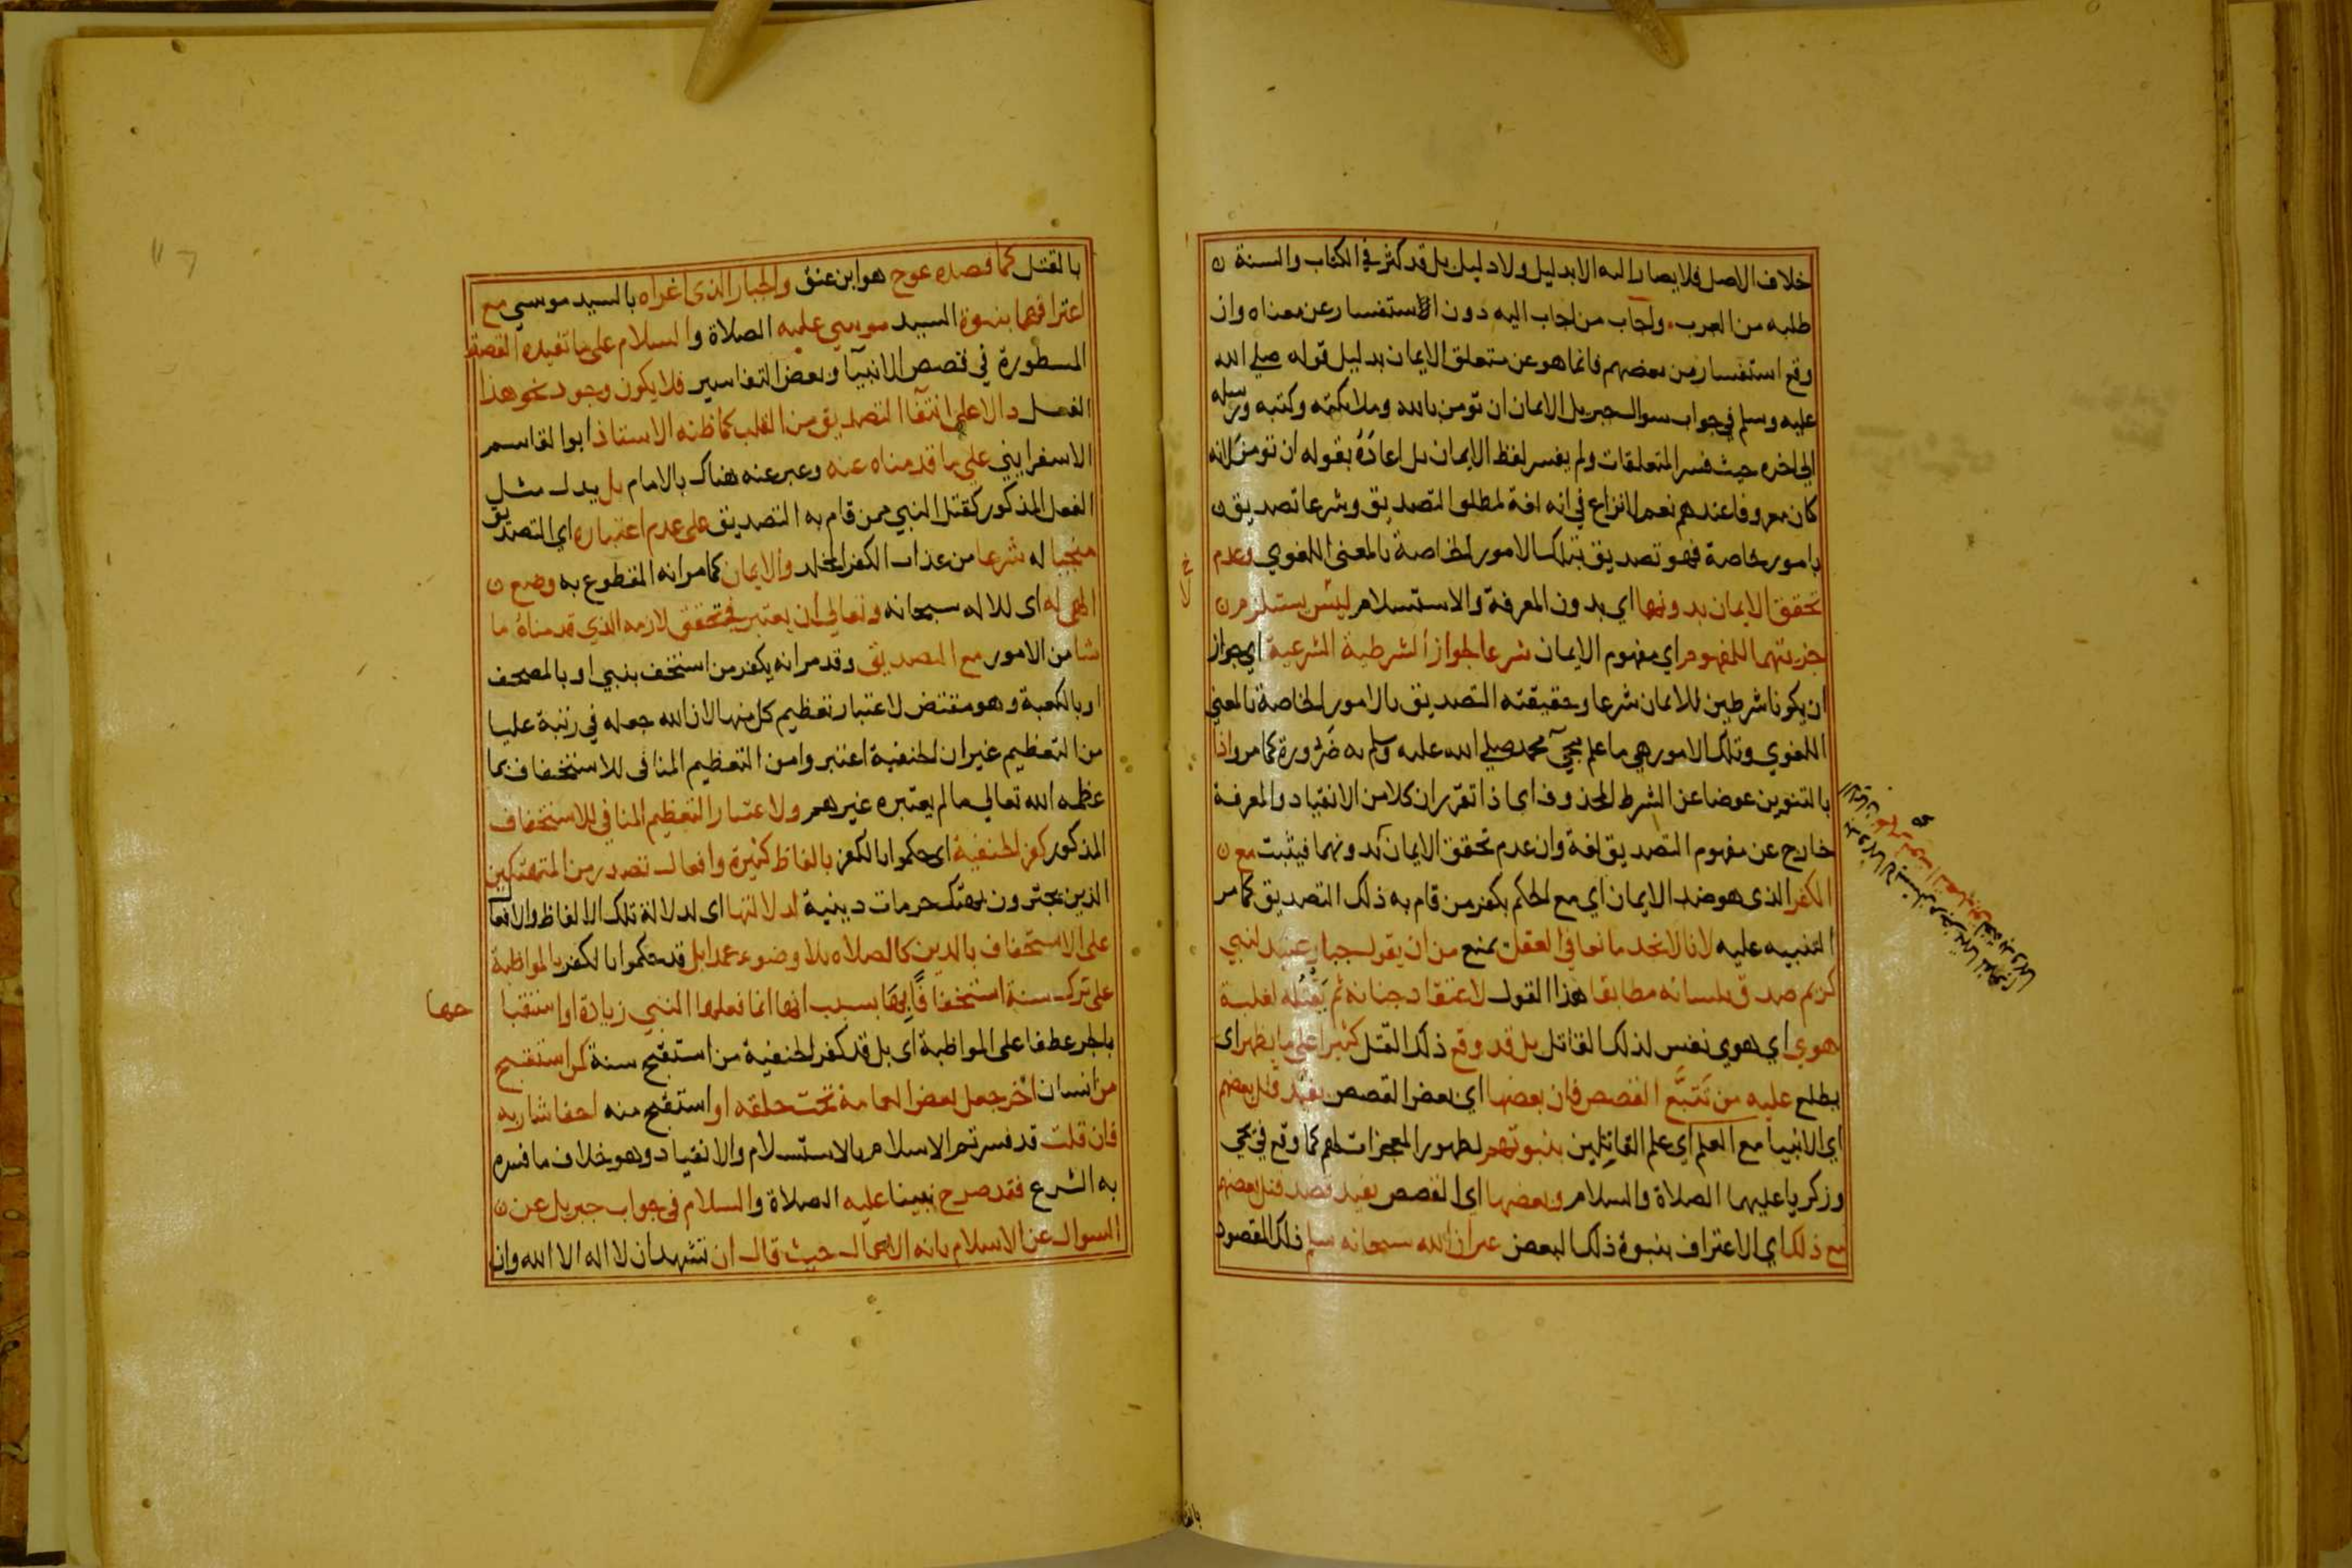 خلاف الاصل فلا يصار اليه الا بدليل ولا دليل بل قد كثر في الكتاب والسنة
طلبه من العرب واجاب من اجاب اليه دون الاستفسار عن معناه وان
وقع استفسار من بعضهم فانما هو عن متعلق الايمان بدليل قوله صلى الله
عليه وسلم في جواب سوال جبريل الايمان ان تومن بالله وملايكته وكتبه ورسله
الى اخره حيث فسر المتعلقات ولم يفسر لفظ الايمان بل اعاده بقوله ان تومن لانه
كان معروفا عندهم نعم لا نزاع في انه لغة لمطلق التصديق وشرعا تصديق
بامور خاصة فهو تصديق بتلك الامور الخاصة بالمعنى اللغوي وعدم
تحقق الايمان بدونهما اي بدون المعرفة والاستسلام ليس يستلزم
جزيتهما للمفهوم اي مفهوم الايمان شرعا لجواز الشرطية الشرعية اي جواز
ان يكونا شرطين للايمان شرعا وحقيقته التصديق بالامور الخاصة بالمعنى
اللغوي وتلك الامور هي ما علم مجيء محمد صلى الله عليه وسلم به ضرورة كما مر واذا
بالتنوين عوضا عن الشرط المحذوف اى اذا تقرر ان كلا من الانقياد والمعرفة
خارج عن مفهوم التصديق لغة وان عدم تحقق الايمان بدونهما فيثبت مع
الكفر الذى هو ضد الايمان اي مع الحكم بكفر من قام به ذلك التصديق كما مر
التنبيه عليه لانا لا نجد مانعا في العقل يمنع من ان يقول جبار عنيد لنبي
كريم صدق بلسانه مطابقا هذا القول لاعتقاد جنانه ثم يقتله لغلبة
هوي اي هوي نفس لذلك القاتل بل قد وقع ذلك القتل كثيرا على ما يظهر اى
يطلع عليه من تتبع القصص فان بعضها اي بعض القصص يفيد قتل بعضهم
اي الانبيا مع العلم اي علم القاتلين بنبوتهم لظهور المعجزات لهم كما وقع في يحي
وزكريا عليهما الصلاة والسلام وبعضها اي القصص يفيد قصد قتل بعضهم
مع ذلك اي الاعتراف بنبوة ذلك البعض غير ان الله سبحانه سلم ذلك المقصود
بالقتل كما قصده عوج هو ابن عنق والجبار الذى اغراه بالسيد موسي مع
اعترافهما بنبوة السيد موسي عليه الصلاة والسلام على ما تفيده القصة
المسطورة في قصص الانبيآ وبعض التفاسير فلا يكون وجود نحو هذا
الفعل دالا على انتفآ التصديق من القلب كما ظنه الاستاذ ابو القاسم
الاسفرايني على ما قدمناه عنه وعبر عنه هناك بالامام بل يدل مثل
الفعل المذكور كقتل النبي ممن قام به التصديق على عدم اعتباره اي التصديق
منجيا له شرعا من عذاب الكفر المخلد والايمان كما مر انه المقطوع به وضع
الهي له اى للاله سبحانه وتعالي ان يعتبر في تحقق لازمه الذي قدمناه ما
شا من الامور مع التصديق وقد مر انه يكفر من استخف بنبي او بالمصحف
او بالكعبة وهو مقتض لاعتبار تعظيم كل منها لان الله جعله في رتبة عليا
من التعظيم غير ان الحنفية اعتبروا من التعظيم المنافى للاستخفاف بما
عظمه الله تعالي ما لم يعتبره غيرهم ولاعتبار التعظيم المنافي للاستخفاف
المذكور كفر الحنفية اى حكموا بالكفر بالفاظ كثيرة وافعال تصدر من المتهتكين
الذين يجترون بهتك حرمات دينية لدلالتها اى لدلالة تلك الالفاظ والافعال
على الاستخفاف بالدين كالصلاه بلا وضوء عمدا بل قد حكموا بالكفر بالمواظبة
على ترك سنة استخفافا بها بسبب انها انما فعلها النبي زيادة او استقبا
حها
بالجر عطفا على المواظبة اى بل قد كفر الحنفية من استقبح سنة كمن استقبح
من انسان اخر جعل بعض العمامة تحت حلقه او استقبح منه احفا شاربه
فان قلت قد فسرتم الاسلام بالاستسلام والانقياد وهو خلاف ما فسره
به الشرع فقد صرح نبينا عليه الصلاة والسلام في جواب جبريل عن
السوال عن الاسلام بانه الاعمال حيث قال ان تشهد ان لا اله الا الله وان